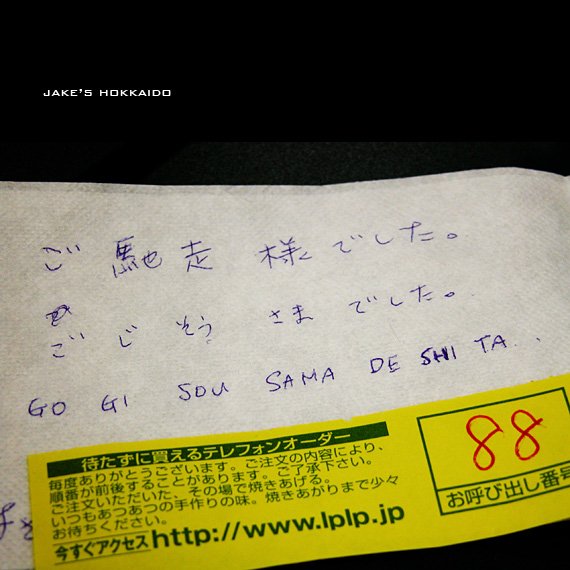 JAKE'S HOKKAIDO
ご馳走様でした。
ご じ そう さま でした。
GO GI SOU SAMA DE SHI TA...
待たずに買えるテレフォンオーダー
毎度ありがとうございます。ご注文の内容により、
順番が前後することがあります。ご了承下さい。
ご注文いただいた、その場で焼きあげる。
いつもあつあつの手作りの味。焼きあがりまで少々
お待ちください。
今すぐアクセス http://www.lplp.jp
88
お呼び出し番号